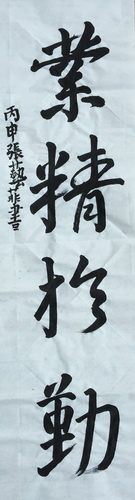 業精於勤
丙申張藝菲書